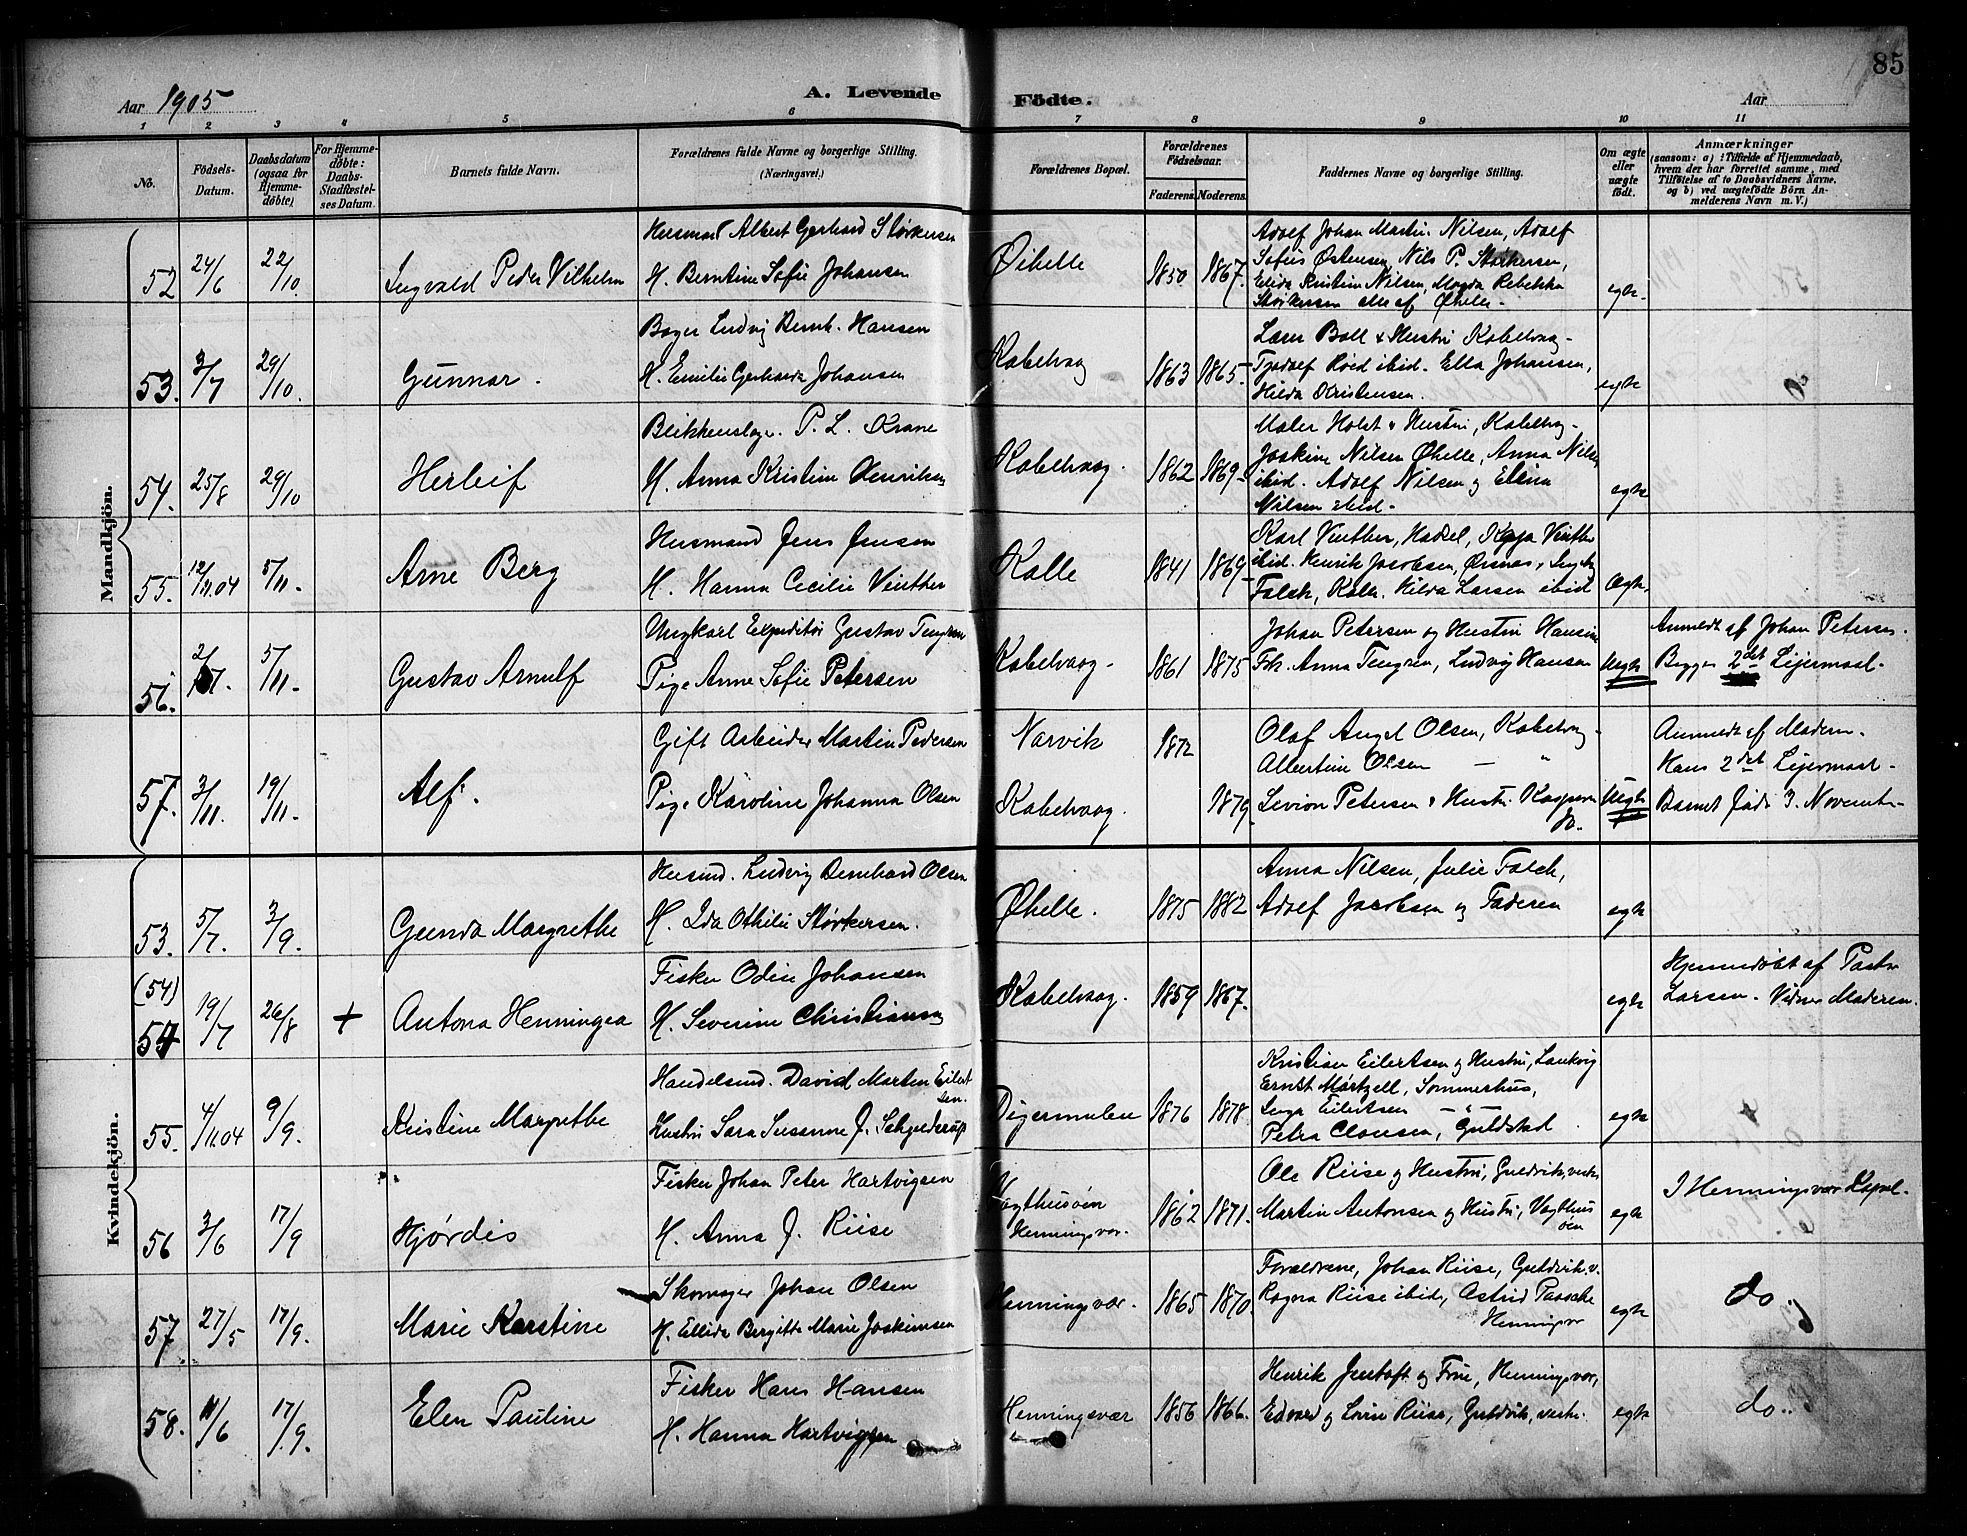 Aar 1905
A. Levende Födte.
Aar
85
1 2 3 4 5 6 7 8 9 10 11
No.
Födsels-
Datum.
Daabsdatum
(ogsaa for
Hjemme-
döbte)
For Hjemme-
döbte:
Daabs-
Stadfæstel-
ses Datum.
Barnets fulde Navn.
Forældrenes fulde Navne og borgerlige Stilling.
(Næringsvei.)
Forældrenes Bopæl.
Forældrenes
Födselsaar.
Faderens. Moderens.
Faddernes Navne og borgerlige Stilling.
Om ægte
eller
uægte
födt.
Anmærkninger
(saasom: a) i Tilfælde af Hjemmedaab,
hvem der har forrettet samme, med
Tilföielse af to Daabsvidners Navne,
og b) ved uægtefödte Börn An-
melderens Navn m. V.)
Mandkjön.
52 24/6 22/10 Ingvald Peder Vilhelm
Husmand Albert Gerhard Størkersen
H. Berntine Sofie Johansen
Øihelle 1850 1867.
Adolf Johan Martin Nilsen, Adolf
Sofus Østensen, Nils P. Størkersen,
Elida Kristine Nilsen, Magda Rebekka
Størkersen alle af Øhelle-
egte-
53. 3/7 29/10. Gunnar.
Bager Ludvig Bernh. Hansen
H. Emilie Gerharda Johansen
Kabelvaag 1863 1865.
Boll & Hustru Kabelvaag-
Røed ibid. Ella Johansen,
Hilda Kristensen.
egte
54. 25/8 29/10 Herleif
Blikkenslager. P. L. Krane
H. Anna Kristine Henriksen
Kabelvaag. 1862 1869-
Maler Holst & Hustru, Kabelvaag-
Joakim Nilsen Øhelle, Anna Nilsen
ibid. Adolf Nilsen og Elina
Nilsen ibid-
egte
55. 12/11.04 5/11. Arne Berg
Husmand Jens Jensen
H. Hanna Cecilie Vinther
Kalle 1841 1869-
Karl Vinther, Hadsel, Kaja Vinther
ibid. Henrik Jacobsen, Ørsnes,
Falch, Kalle. Hilda Larsen ibid
Ægte.
56. 5/11. Gustav Arnulf
Ungkarl Expeditør Gustav Tengsen
Pige Anne Sofie Petersen
Kabelvaag- 1861 1875
Johan Petersen og Hustru Hansine
Frk. Anna Tengsen, Ludvig Hansen
Uegte
Anmeldt af Johan Petersen.
Begges 2det Lejermaal-
57. 3/11. 19/11. Alf.
Gift Arbeider Martin Pedersen
Pige Karoline Johanna Olsen
Narvik 1872
Kabelvaag. 1879.
Olaf Angel Olsen, Kabelvaag-
Albertine Olsen — "
Petersen & Hustru Kaspara
do.
Uegte
Anmeldt af Moderen.
Hans 2det Lejermaal-
Barnet født 3. November-
Kvindekjön.
53. 5/7. 3/9. Gunda Margrethe
Husmd. Ludvig Bernhard Olsen
H. Ida Othilie Størkersen.
Øhelle. 1875 1882
Anna Nilsen, Julie Falch,
Adolf Jacobsen og Faderen
egte
(54)
54 19/7 26/8 + Antona Henningea
Fisker Odin Johansen
H. Severine Christiansen
Kabelvaag. 1859 1867.
egte
Hjemmedøbt af Pastor
Larsen. Vidne Moderen.
55. 4/11.04 9/9. Kristine Margrethe
Handelsmd. David Morten Eilert
sen.
Hustru Sara Susanne J. Schjelderup
Digermulen 1876 1878.
Kristian Eilertsen og Hustru, Laukvig
Ernst Mørtzell, Sommerhus,
Inga Eilertsen —"—
Petra Clausen, Guldstad.
egte
56 3/6 17/9 Hjørdis
Fisker Johan Peter Hartvigsen
H. Anna J. Riise
Vagthusøen
Henningsvær. 1862 1871.
Ole Riise og Hustru, Guldvik, vestre
Martin Antonsen og Hustru, Vagthus
øen
egte
I Henningsvær Kapel-
57. 27/5 17/9. Marie Karstine
Skomager Johan Olsen
H. Ellida Bergitte Marie Joakimsen
Henningsvær. 1865 1870.
Forældrene, Johan Riise, Guldvik. v.
Ragna Riise ibid, Astrid Paasche
Henningsvær
egte
do.
58. 11/6 17/9. Elen Pauline
Fisker Hans Hansen
H. Hanna Hartvigsen
Henningsvær 1856 1866.
Henrik Jentoft og Frue, Henningsvær,
Edvard og Lovise Riise, Guldvik, vestre.
egte
do.